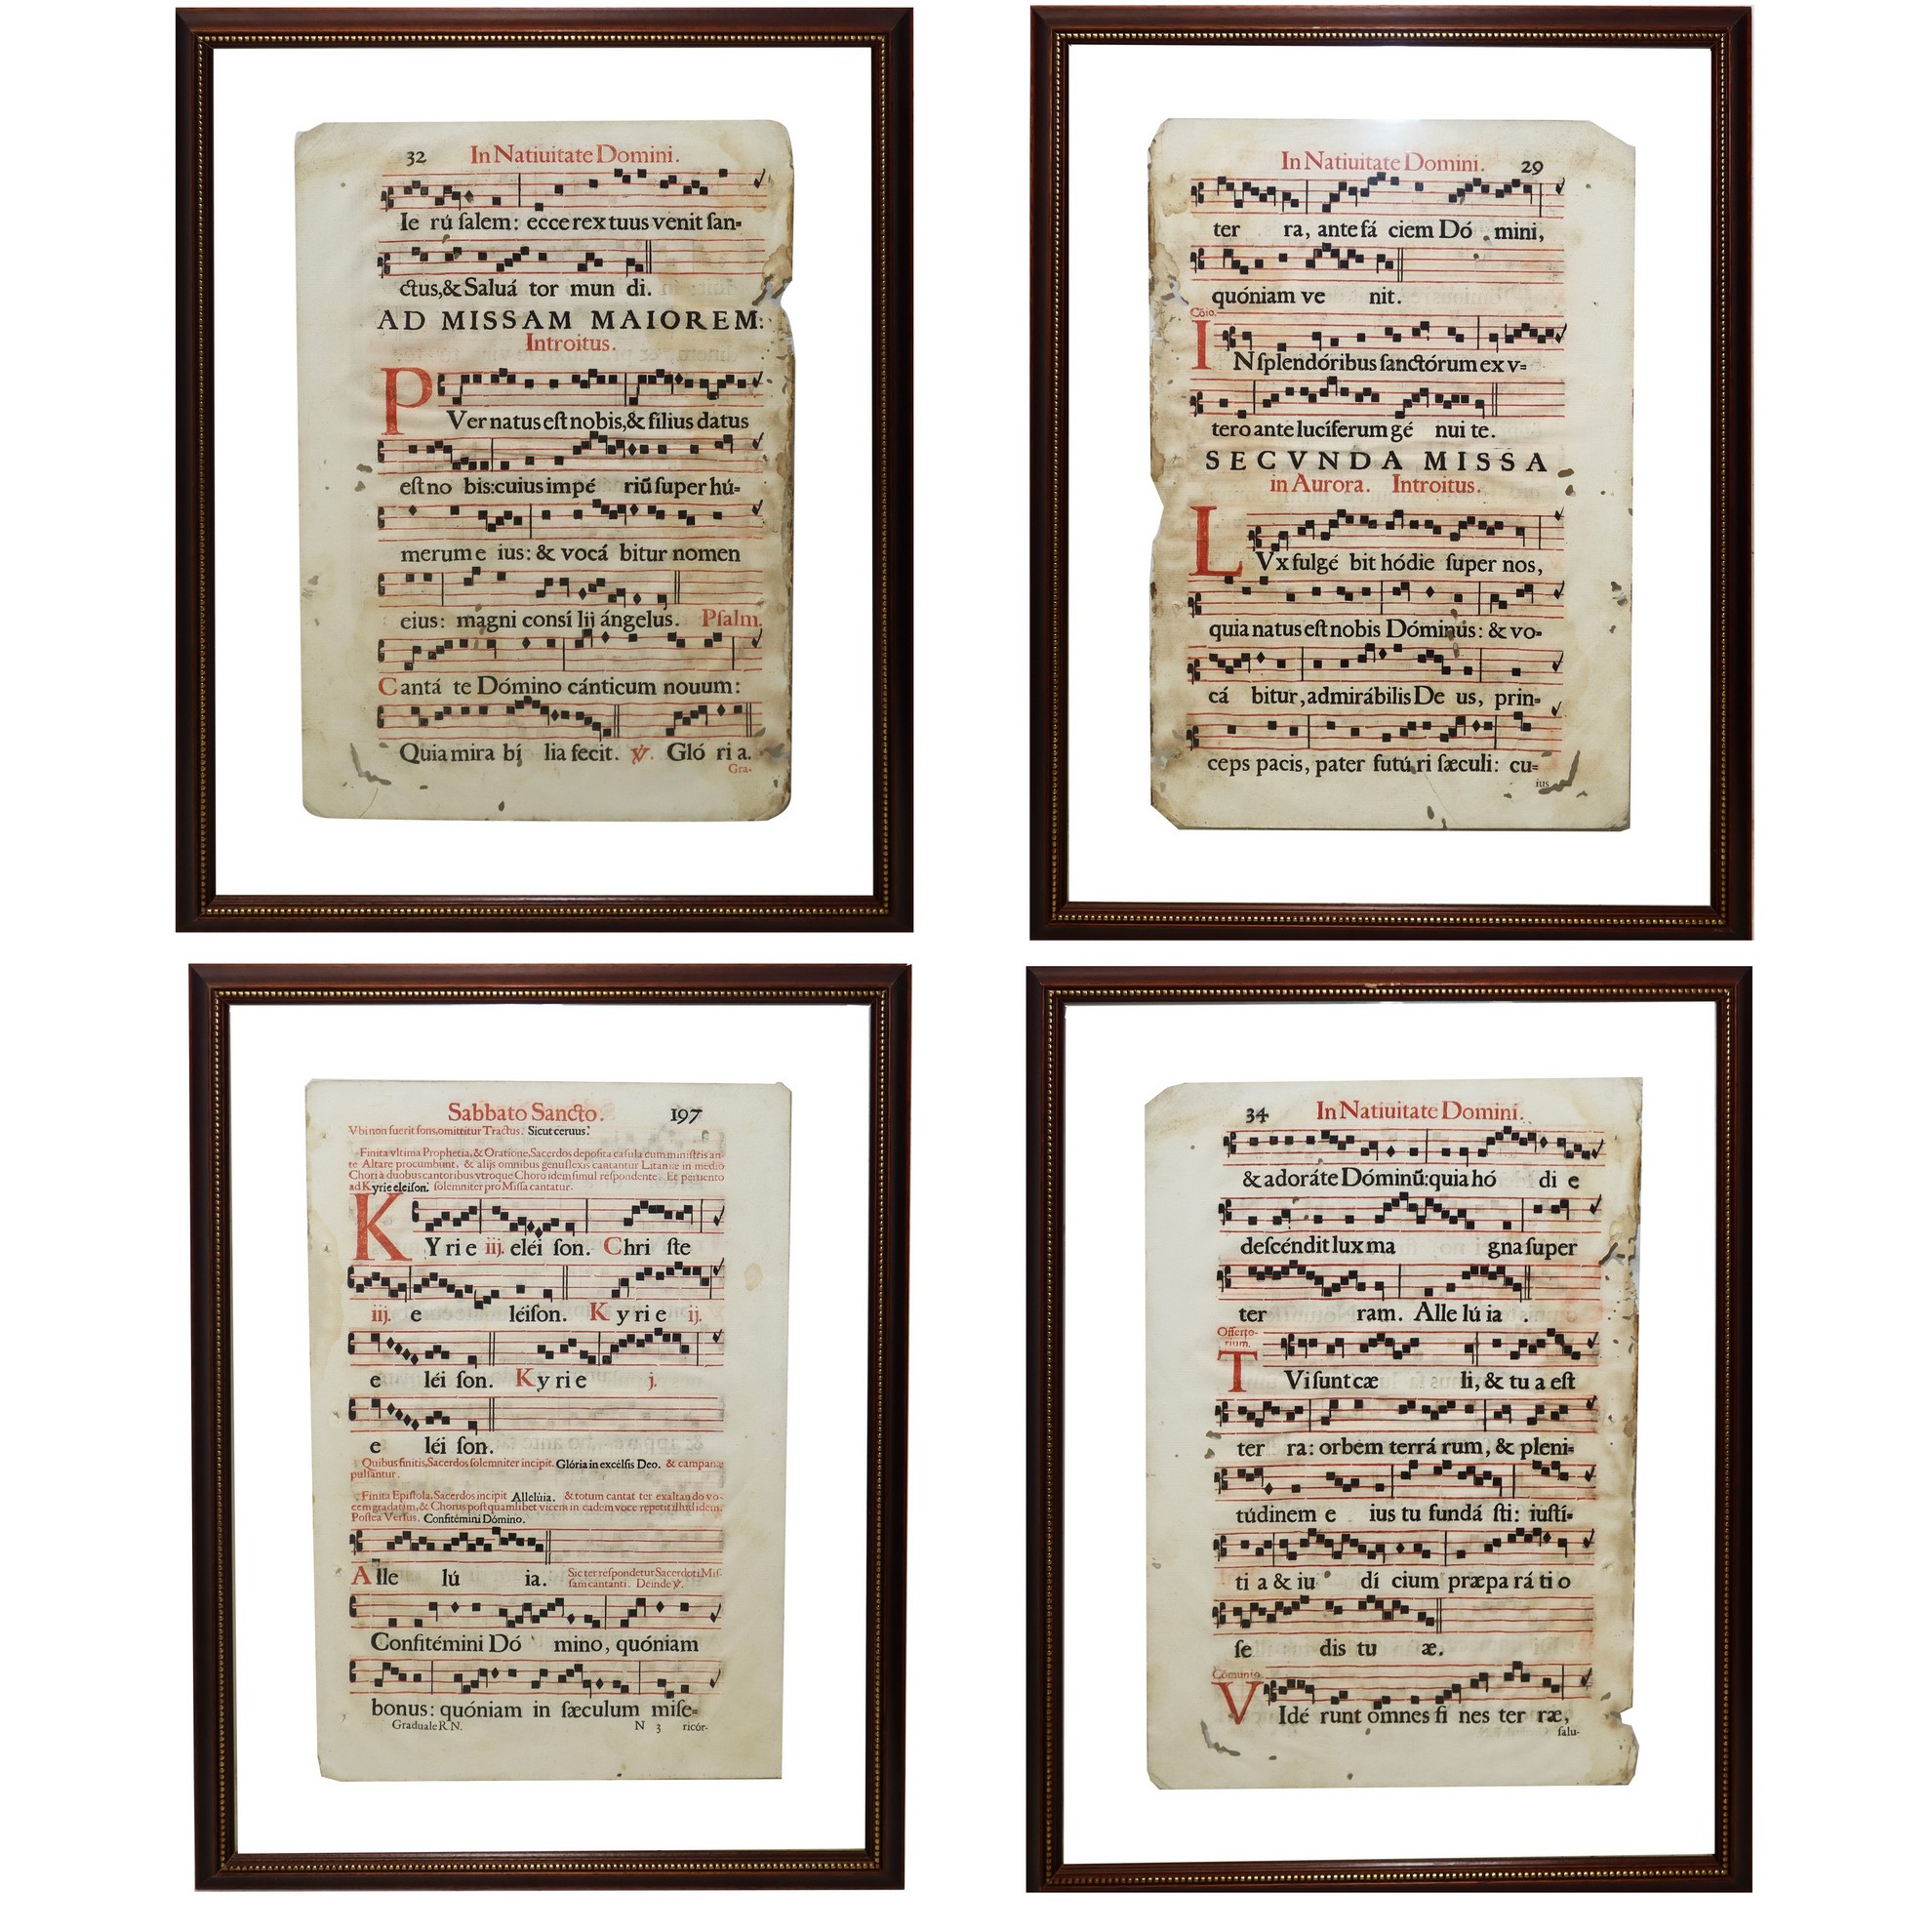 32 In Natiuitate Domini.
Ie rú ſalem: ecce rex tuus venit ſan-
ctus, & Saluá tor mun di.
AD MISSAM MAIOREM:
Introitus.
P Ver natus eſt nobis, & fílius datus
eſt no bis: cuius impé riũ ſuper hú-
merum e ius: & vocá bitur nomen
eius: magni consí lij ángelus. Pſalm.
Cantá te Dómino cánticum nouum:
Quia mira bí lia fecit. ℣. Gló ri a.
Gra-
In Natiuitate Domini. 29
ter ra, ante fá ciem Dó mini,
quóniam ve nit.
Cõio.
I N ſplendóribus ſanctórum ex v-
tero ante lucíferum gé nui te.
SECVNDA MISSA
in Aurora. Introitus.
L Vx fulgé bit hódie ſuper nos,
quia natus eſt nobis Dóminus: & vo-
cá bitur, admirábilis De us, prin-
ceps pacis, pater futú ri ſæculi: cu-
ius
Sabbato Sancto. 197
Vbi non fuerit fons, omittitur Tractus. Sicut ceruus.
Finita vltima Prophetia, & Oratione, Sacerdos depoſita caſula cum miniſtris an-
te Altare procumbunt, & alijs omnibus genuflexis cantantur Litaniæ in medio
Chori à duobus cantoribus vtroque Choro idem ſimul reſpondente. Et peruento
ad Kyrie eleiſon. ſolemniter pro Miſſa cantatur.
K Y ri e iij. eléi ſon. Chri ſte
iij. e léiſon. K y ri e ij.
e léi ſon. K y ri e j.
e léi ſon.
Quibus finitis, Sacerdos ſolemniter incipit. Glória in excélſis Deo. & campanæ
pulſantur.
Finita Epiſtola, Sacerdos incipit Allelúia. & totum cantat ter exaltando vo-
cem gradatim, & Chorus poſt quamlibet vicem in eadem voce repetit illud idem.
Poſtea Verſus. Confitémini Dómino.
Alle lú ia. Sic ter reſpondetur Sacerdoti Miſ-
ſam cantanti. Deinde ℣.
Confitémini Dó mino, quóniam
bonus: quóniam in ſæculum miſe-
Graduale R N. N 3 ricór-
34 In Natiuitate Domini.
& adoráte Dóminũ: quia hó di e
deſcéndit lux ma gna ſuper
ter ram. Alle lú ia
Offerto-
rium.
T Vi ſunt cæ li, & tu a eſt
ter ra: orbem terrá rum, & pleni-
túdinem e ius tu fundá ſti: iuſtí-
ti a & iu dí cium præpa rá ti o
ſe dis tu æ.
Comunio.
V Idé runt omnes fi nes ter ræ,
ſalu-